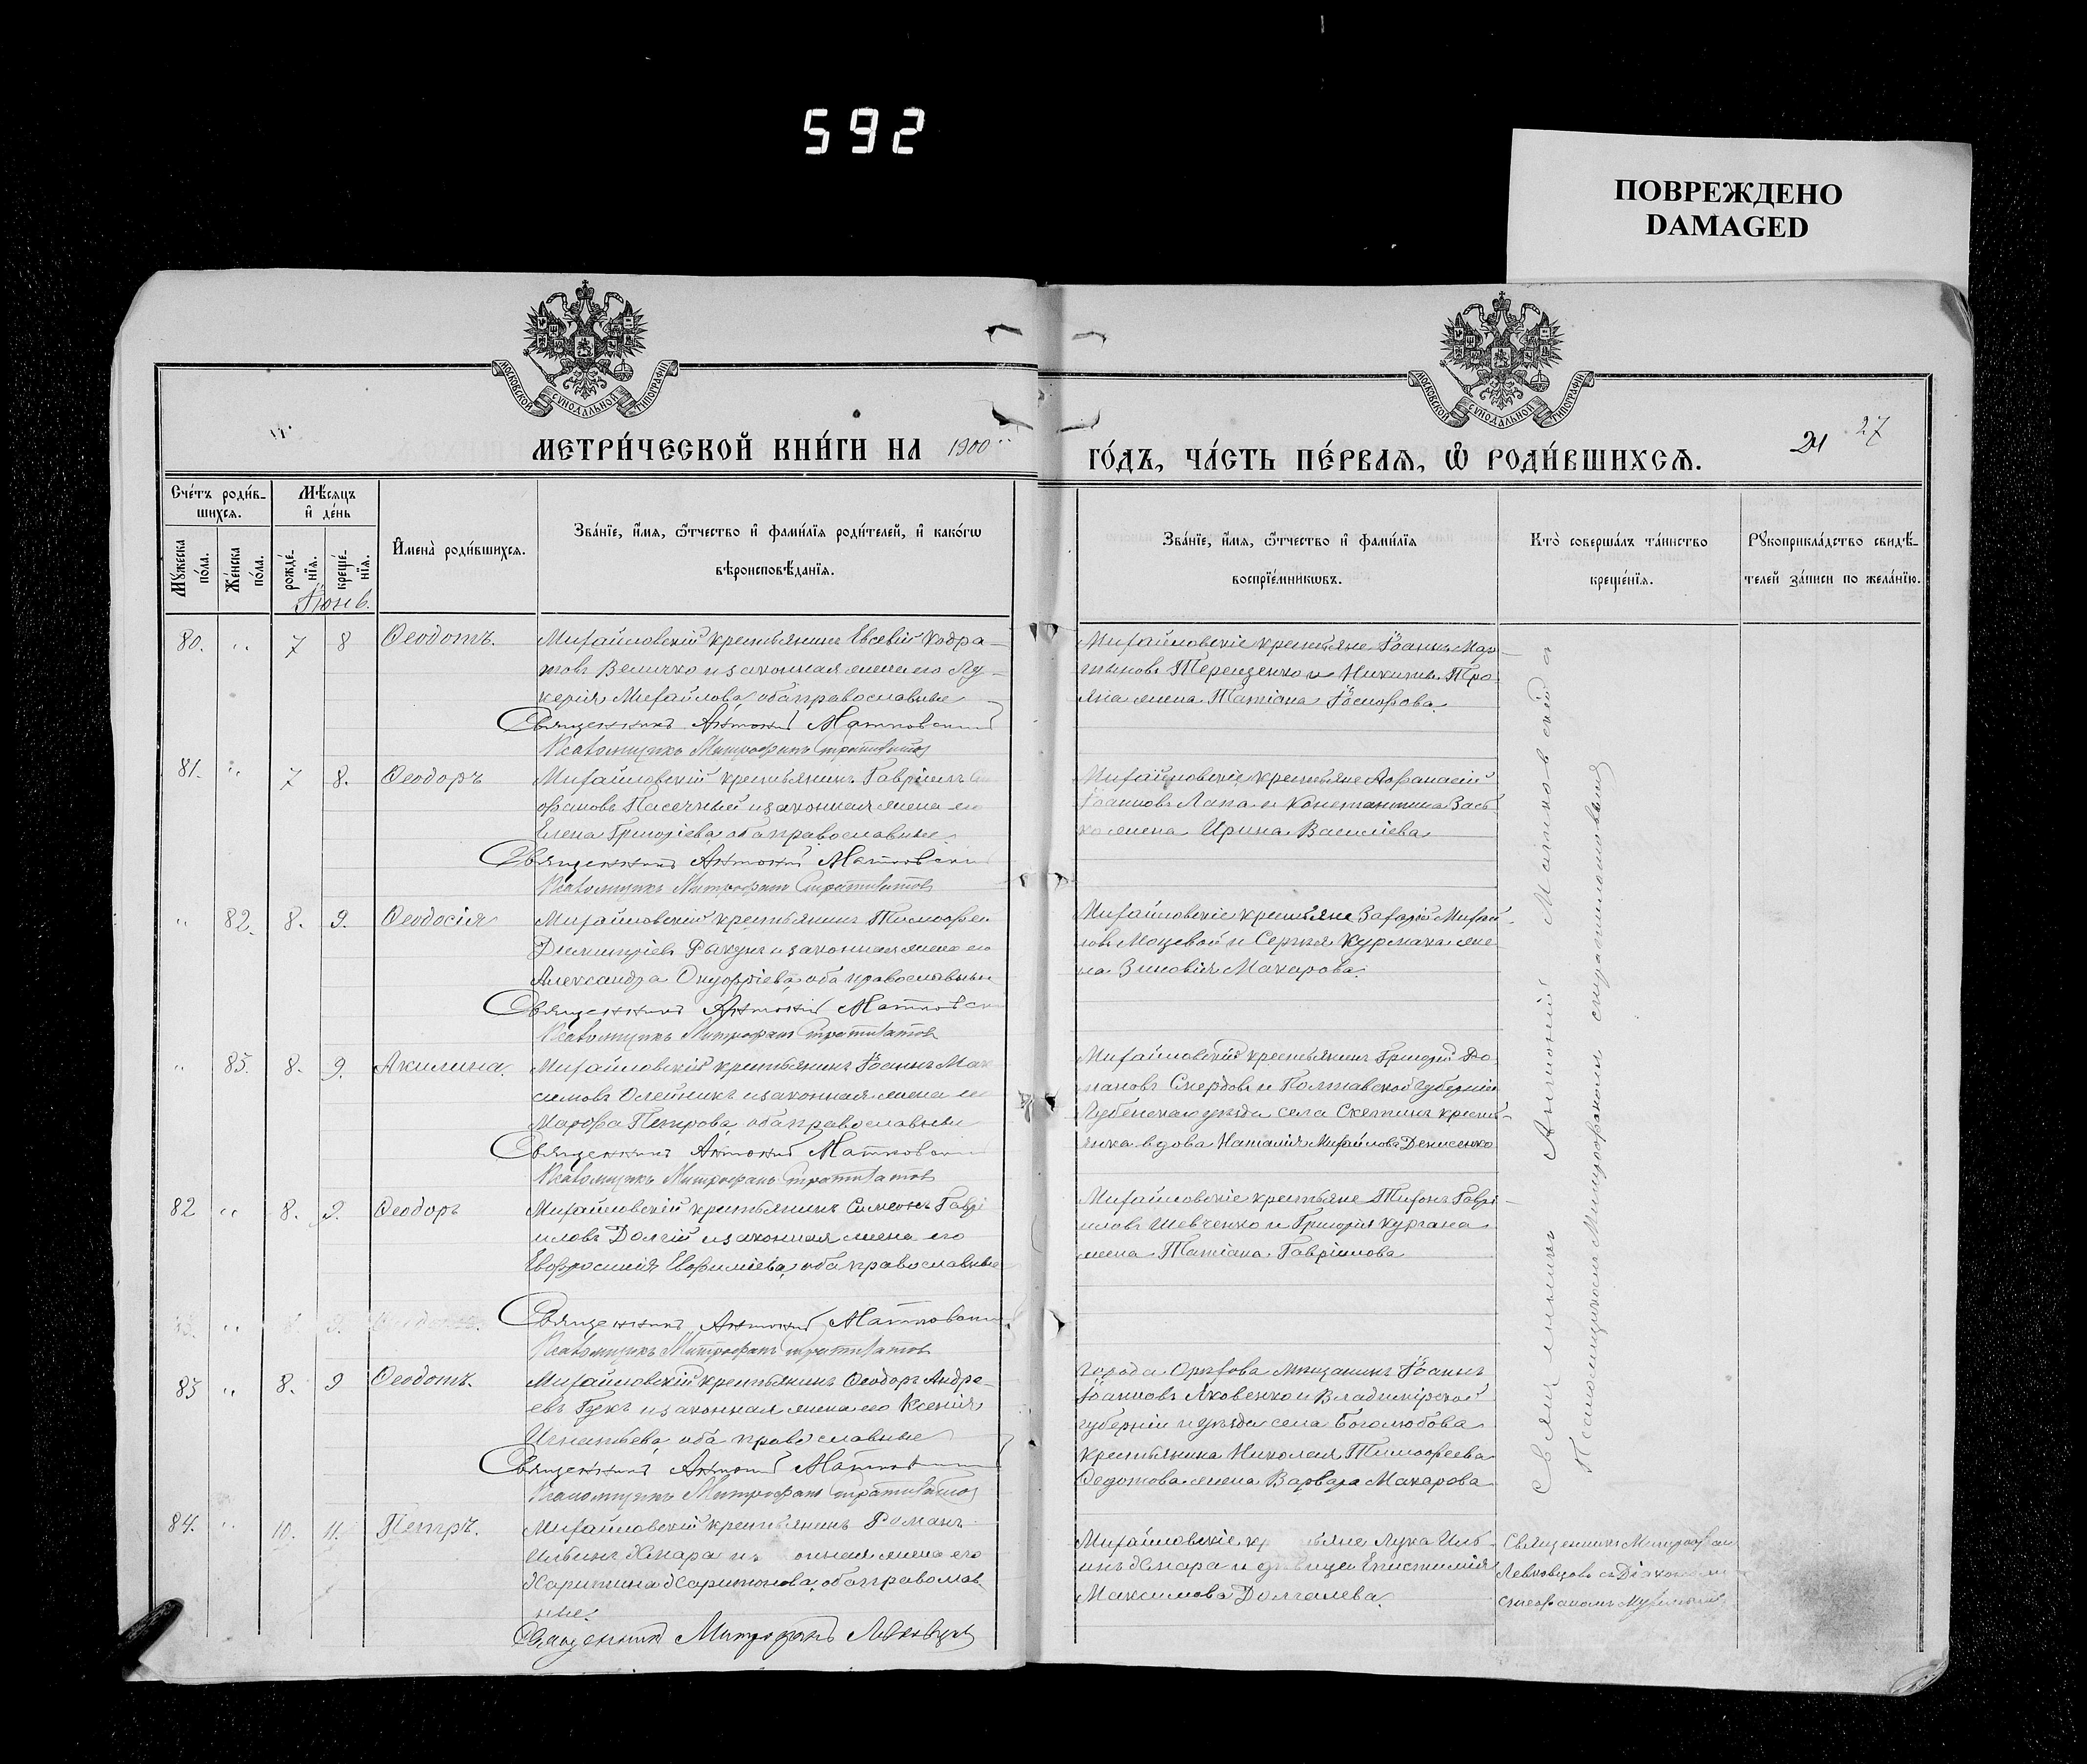 592
ПОВРЕЖДЕНО
DAMAGED
МОСКОВСКОЙ СУНОДАЛЬНОЙ ТИПОГРАФІИ
МОСКОВСКОЙ СУНОДАЛЬНОЙ ТИПОГРАФІИ
МЕТРИ́ЧЕСКОЙ КНИ́ГИ НА 1900
ГО́ДЪ, ЧА́СТЬ ПЕ́РВАЯ, Ѡ҆ РОДИ́ВШИХСѦ.
21 27
Сче́тъ роди́в-
шихсѧ.
Мꙋ́жеска по́ла.
Же́нска по́ла.
Мѣ́сѧцъ
и҆ де́нь
рожде́-
нїѧ.
креще́-
нїѧ.
Іюнь.
И҆мена̀ роди́вшихсѧ.
Зва́нїе, и҆́мѧ, ѻ҆́тчество и҆ фами́лїѧ роди́телей, и҆ како́гѡ
вѣроисповѣ́данїѧ.
Зва́нїе, и҆́мѧ, ѻ҆́тчество и҆ фами́лїѧ
воспрїе́мникѡвъ.
Кто̀ соверша́лъ та́инство
креще́нїѧ.
Рꙋкоприкла́дство свидѣ́-
телей за́писи по жела́нїю.
80. " 7 8 Ѳеодотъ.
Михайловскій крестьянинъ Евсевій Кодра-
товъ Величко и законная жена его Лу-
керія Михайлова, оба православные
Священникъ Антоній Матковский
Псаломщикъ Митрофанъ
Михайловскіе крестьяне Іоаннъ Мар-
тыновъ Терещенко и Никиты Тро-
яна жена Татіана Іосифова.
81. " 7 8. Ѳеодоръ
Михайловскій крестьянинъ Гавріилъ
офановъ Пасечный и законная жена его
Елена Григоріева, оба православные
Священникъ Антоній Матковский
Псаломщикъ Митрофанъ
Михайловскіе крестьяне Афанасій
Іоанновъ Лапа и Константина Зась
ко жена Ирина Василіева
" 82. 8. 9. Ѳеодосія
Михайловскій крестьянинъ Тимофей
Димитріевъ Ракунъ и законная жена его
Александра Онуфріева, оба православные
Священникъ Антоній Матковский
Псаломщикъ Митрофанъ
Михайловскіе крестьяне Захарій Михай-
ловъ Моцевой и Сергія Курмака же-
на Зиновія Макарова.
" 83. 8. 9. Акилина.
Михайловскій крестьянинъ Іоаннъ Мак
симовъ Олейникъ и законная жена его
Марфа Петрова, оба православные
Священникъ Антоній Матковский
Псаломщикъ Митрофанъ
Михайловскій крестьянинъ Григорій Ро-
мановъ Смердовъ и Полтавской губерніи
Лубенскаго уѣзда села крестьян-
янка вдова Наталія Михайлова Денисенко
82 " 8. 9. Ѳеодоръ
Михайловскій крестьянинъ Симеонъ Гаврі
иловъ Долгій и законная жена его
Евфросинія Евфиміева, оба православные
" 9.
Священникъ Антоній Матковский
Псаломщикъ Митрофанъ
Михайловскіе крестьяне Тихонъ Гаврі-
иловъ Шевченко и Григорія Кургана
жена Татіана Гавріилова
83 " 8. 9 Ѳеодотъ.
Михайловскій крестьянинъ Ѳеодоръ Андре-
евъ Гукъ и законная жена его Ксенія
Игнатьева, оба православные
Священникъ Антоній Матковский
Псаломщикъ Митрофанъ
города Орѣхова мѣщанинъ Іоаннъ
Іоанновъ Яковенко и Владимірской
губерніи и уѣзда села Боголюбова
крестьянина Николая Тимофеева
Ѳедотова жена Варвара Макарова
84. " 10. 11. Петръ.
Михайловскій крестьянинъ Романъ
Ильинъ Хмара и онная жена его
Харитина Харитонова, оба православ-
ные.
Священникъ Митрофанъ Левковцовъ
Михайловскіе кр ьяне Лука Иль-
инъ Хмара и дѣвица Епистимія
Максимова Долгалева.
Священникъ Антоній Матковскій а
Псаломщикомъ Митрофаномъ
Священникъ Митрофанъ
Левковцовъ съ Діакономъ
Стефаномъ